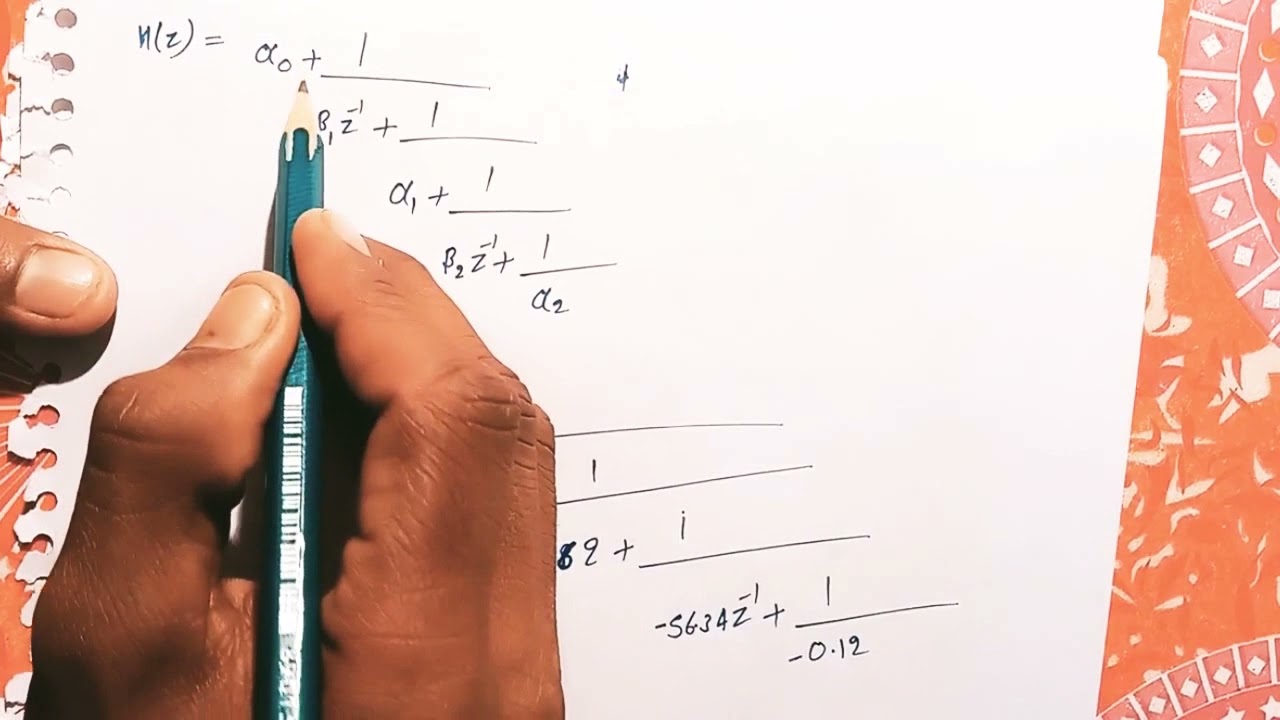 H(z) = α₀ + 1
β₁ z⁻¹ + 1
α₁ + 1
β₂ z⁻¹ + 1
α₂
1
82 + 1
-5634z⁻¹ + 1
-0.12